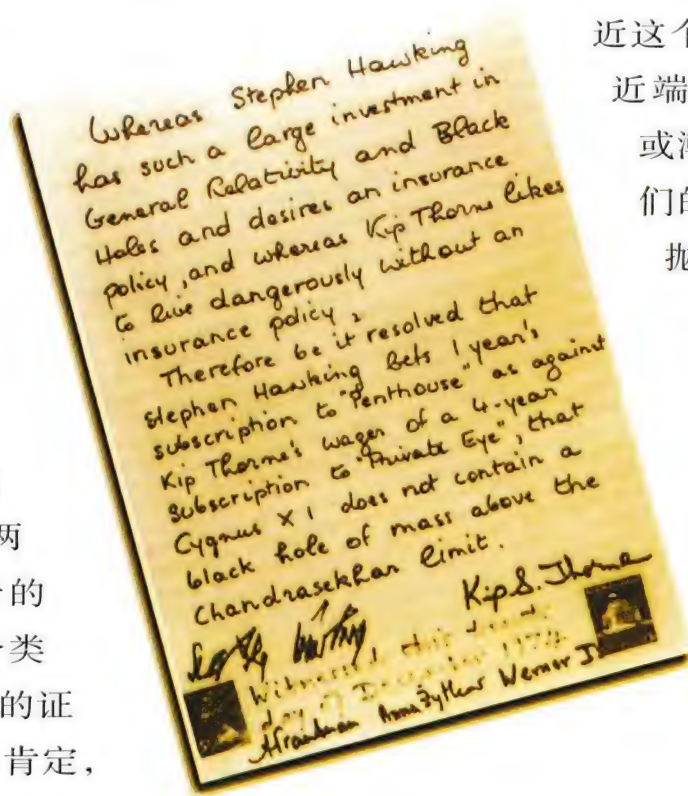 近这个
近端
或
们的
抛
Whereas Stephen Hawking
has such a large investment in
General Relativity and Black
Holes and desires an insurance
policy, and whereas Kip Thorne likes
to live dangerously without an
insurance policy,
Therefore be it resolved that
Stephen Hawking bets 1 year's
subscription to "Penthouse" as against
Kip Thorne's wager of a 4-year
subscription to "Private Eye", that
Cygnus X 1 does not contain a
black hole of mass above the
Chandrasekhar limit.
Kip S. Thorne
Witnessed this
day of December
Anna Żytkow Werner
两
的
类
的证
肯定，